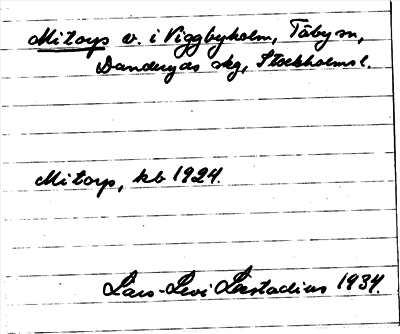 Mitorp v. i Viggbyholm, Täby sn,
Danderyds skg, Stockholms l.
Mitorp, kb 1924.
Lars-Levi Læstadius 1934.